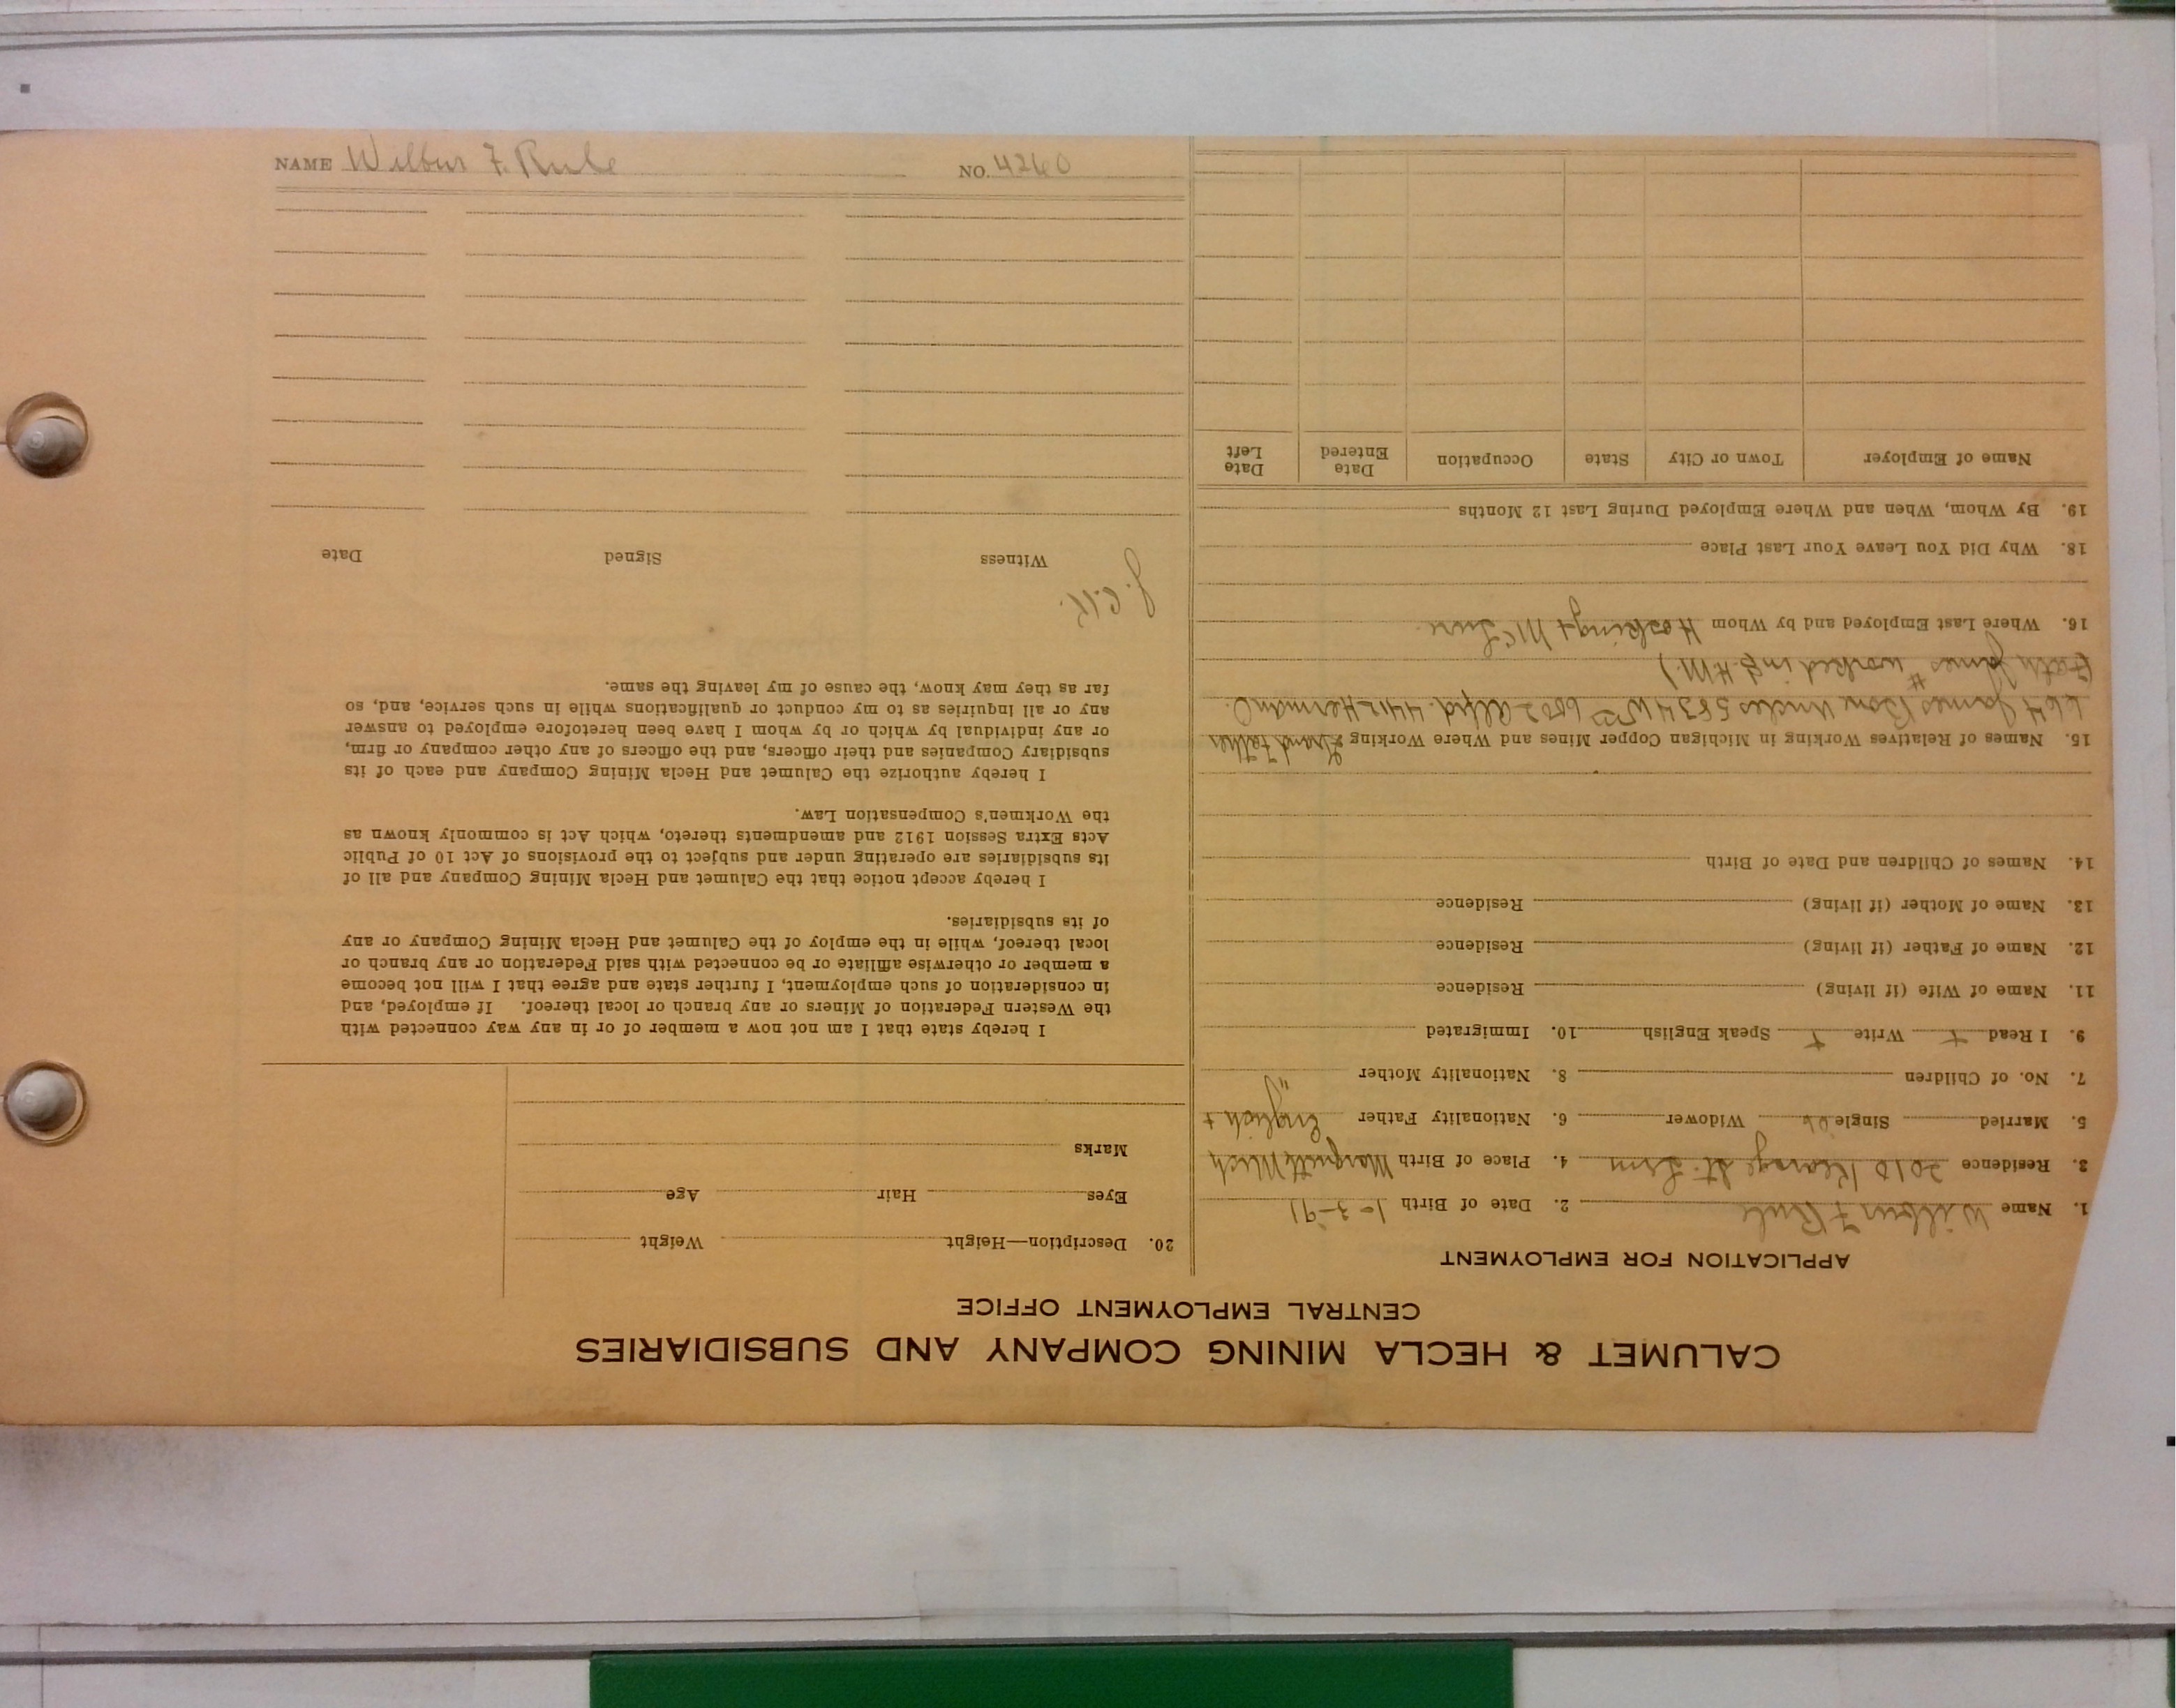 NAME Wilbur F. Rule NO. 4260
CALUMET & HECLA MINING COMPANY AND SUBSIDIARIES
CENTRAL EMPLOYMENT OFFICE
APPLICATION FOR EMPLOYMENT
1. Name Wilbur F Rule 2. Date of Birth 1-3-91
3. Residence 2010 Kearage St. Lrm 4. Place of Birth Marquette Mich
5. Married Single Widower 6. Nationality Father English +
7. No. of Children 8. Nationality Mother "
9. I Read + Write + Speak English 10. Immigrated
11. Name of Wife (if living) Residence
12. Name of Father (if living) Residence
13. Name of Mother (if living) Residence
14. Names of Children and Date of Birth
15. Names of Relatives Working in Michigan Copper Mines and Where Working Grand Father
664 James Bone Uncles 5834 Wm 6502 Alfred. 4412 Herman O.
James # worked in H.M.)
16. Where Last Employed and by Whom Hosking +
18. Why Did You Leave Your Last Place
19. By Whom, When and Where Employed During Last 12 Months
Name of Employer Town or City State Occupation Date Entered Date Left
20. Description—Height Weight
Eyes Hair Age
Marks
I hereby state that I am not now a member of or in any way connected with
the Western Federation of Miners or any branch or local thereof. If employed, and
in consideration of such employment, I further state and agree that I will not become
a member or otherwise affiliate or be connected with said Federation or any branch or
local thereof, while in the employ of the Calumet and Hecla Mining Company or any
of its subsidiaries.
I hereby accept notice that the Calumet and Hecla Mining Company and all of
its subsidiaries are operating under and subject to the provisions of Act 10 of Public
Acts Extra Session 1912 and amendments thereto, which Act is commonly known as
the Workmen's Compensation Law.
I hereby authorize the Calumet and Hecla Mining Company and each of its
subsidiary Companies and their officers, and the officers of any other company or firm,
or any individual by which or by whom I have been heretofore employed to answer
any or all inquiries as to my conduct or qualifications while in such service, and, so
far as they may know, the cause of my leaving the same.
J.C.K.
Witness Signed Date